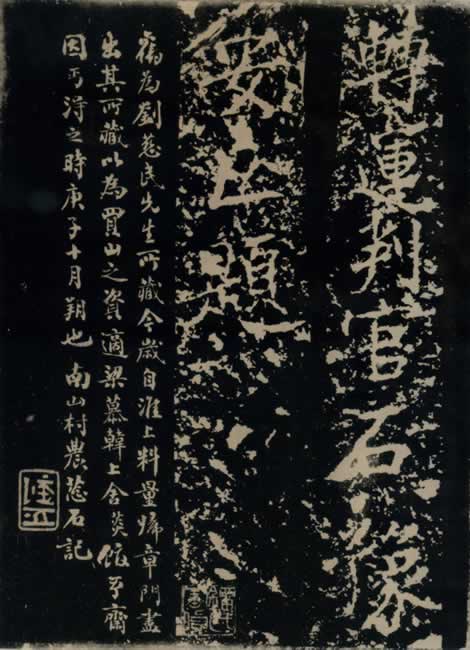 轉運判官石豫
安止題
舊為劉慈民先生所藏今歲自淮上料量歸章門盡
出其所藏以為買山之資適梁慕韓上舍齋
因丐淂之時庚子十月朔也 南山村農慈石記